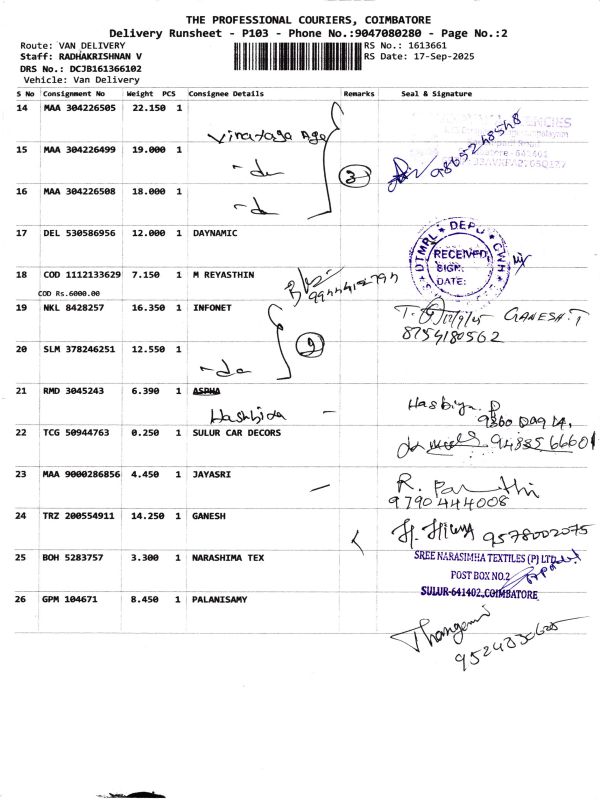 THE PROFESSIONAL COURIERS, COIMBATORE
Delivery Runsheet - P103 - Phone No.:9047080280 - Page No.:2
Route: VAN DELIVERY RS No.: 1613661
Staff: RADHAKRISHNAN V RS Date: 17-Sep-2025
DRS No.: DCJB161366102
Vehicle: Van Delivery
S No Consignment No Weight PCS Consignee Details Remarks Seal & Signature
14 MAA 304226505 22.150 1
15 MAA 304226499 19.000 1 - do 3 9865248548
16 MAA 304226508 18.000 1 - do
17 DEL 530586956 12.000 1 DAYNAMIC DEPO RECEIVED SIGN: DATE:
18 COD 1112133629 7.150 1 M REYASTHIN
COD Rs.6000.00
19 NKL 8428257 16.350 1 INFONET GANESH.T
8754180562
20 SLM 378246251 12.550 1 - do 2
21 RMD 3045243 6.390 1 ASPHA
Hashbida - Hasbiya. P
22 TCG 50944763 0.250 1 SULUR CAR DECORS
23 MAA 9000286856 4.450 1 JAYASRI -
9790444008
24 TRZ 200554911 14.250 1 GANESH 9578002075
25 BOH 5283757 3.300 1 NARASHIMA TEX SREE NARASIMHA TEXTILES (P) LTD
POST BOX NO.2
SULUR-641402, COIMBATORE
26 GPM 104671 8.450 1 PALANISAMY